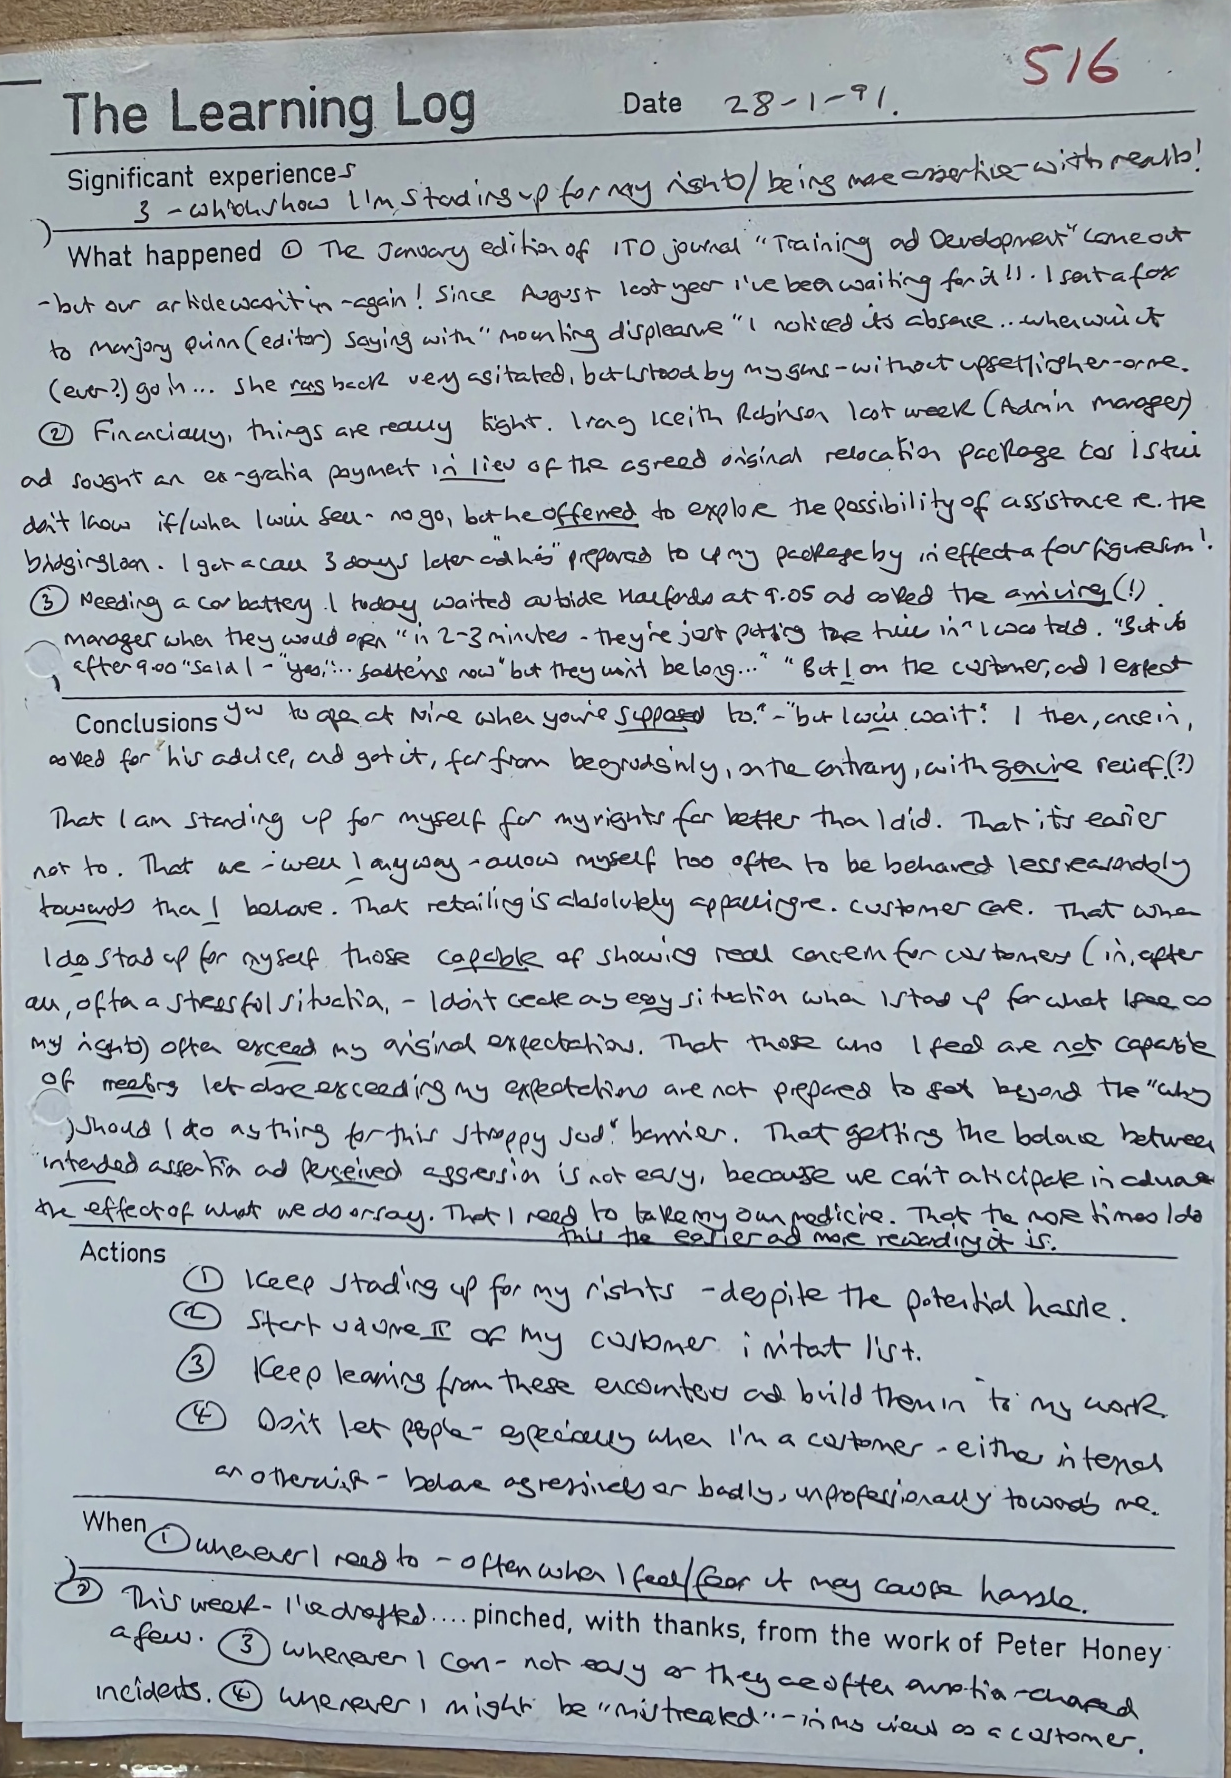 516
The Learning Log Date 28-1-91.
Significant experiences
3 - which show I'm standing up for my rights/being more assertive - with results!
What happened ① The January edition of ITD journal "Training and Development" came out
- but our article wasn't in - again! Since August last year I've been waiting for it!! I sent a fax
to Marjory Quinn (editor) saying with "mounting displeasure" I noticed its absence.. when will it
(ever?) go in... She rang back very agitated, but I stood by my guns - without upsetting her - or me.
② Financially, things are really tight. I rang Keith Robinson last week (Admin manager)
and sought an ex-gratia payment in lieu of the agreed original relocation package cos I still
don't know if/when I will sell - no go, but he offered to explore the possibility of assistance re. the
bridging loan. I got a call 3 days later and he's "prepared" to up my package by in effect a four figure sum!
③ Needing a car battery I today waited outside Halfords at 9.05 and asked the arriving (!)
manager when they would open "in 2-3 minutes - they're just putting the till in" I was told. "But it's
after 9.00" said I - "yes, ... now" but they won't be long..." "But I am the customer, and I expect
Conclusions you to open at Nine when you're supposed to." - "but I will wait". I then, once in,
asked for his advice, and got it, far from begrudgingly, on the contrary, with genuine relief.(?)
That I am standing up for myself for my rights far better than I did. That it's easier
not to. That we - well I anyway - allow myself too often to be behaved less reasonably
towards than I behave. That retailing is absolutely appalling re. customer care. That when
I do stand up for myself those capable of showing real concern for customers (in, after
all, often a stressful situation, - I don't create an easy situation when I stand up for what I see as
my rights) often exceed my original expectations. That those who I feel are not capable
of meeting let alone exceeding my expectations are not prepared to get beyond the "why
should I do anything for this stroppy sod" barrier. That getting the balance between
intended assertion and perceived aggression is not easy, because we can't anticipate in advance
the effect of what we do or say. That I need to take my own medicine. That the more times I do
this the easier and more rewarding it is.
Actions
① Keep standing up for my rights - despite the potential hassle.
② Start volume II of my customer irritant list.
③ Keep learning from these encounters and build them in to my work.
④ Don't let people - especially when I'm a customer - either internal
or otherwise - behave aggressively or badly, unprofessionally towards me.
When ① whenever I need to - often when I feel/fear it may cause hassle.
② This week - I've drafted.... pinched, with thanks, from the work of Peter Honey
a few. ③ Whenever I can - not easy as they are often emotion-charged
incidents. ④ Whenever I might be "mistreated" - in my view as a customer.